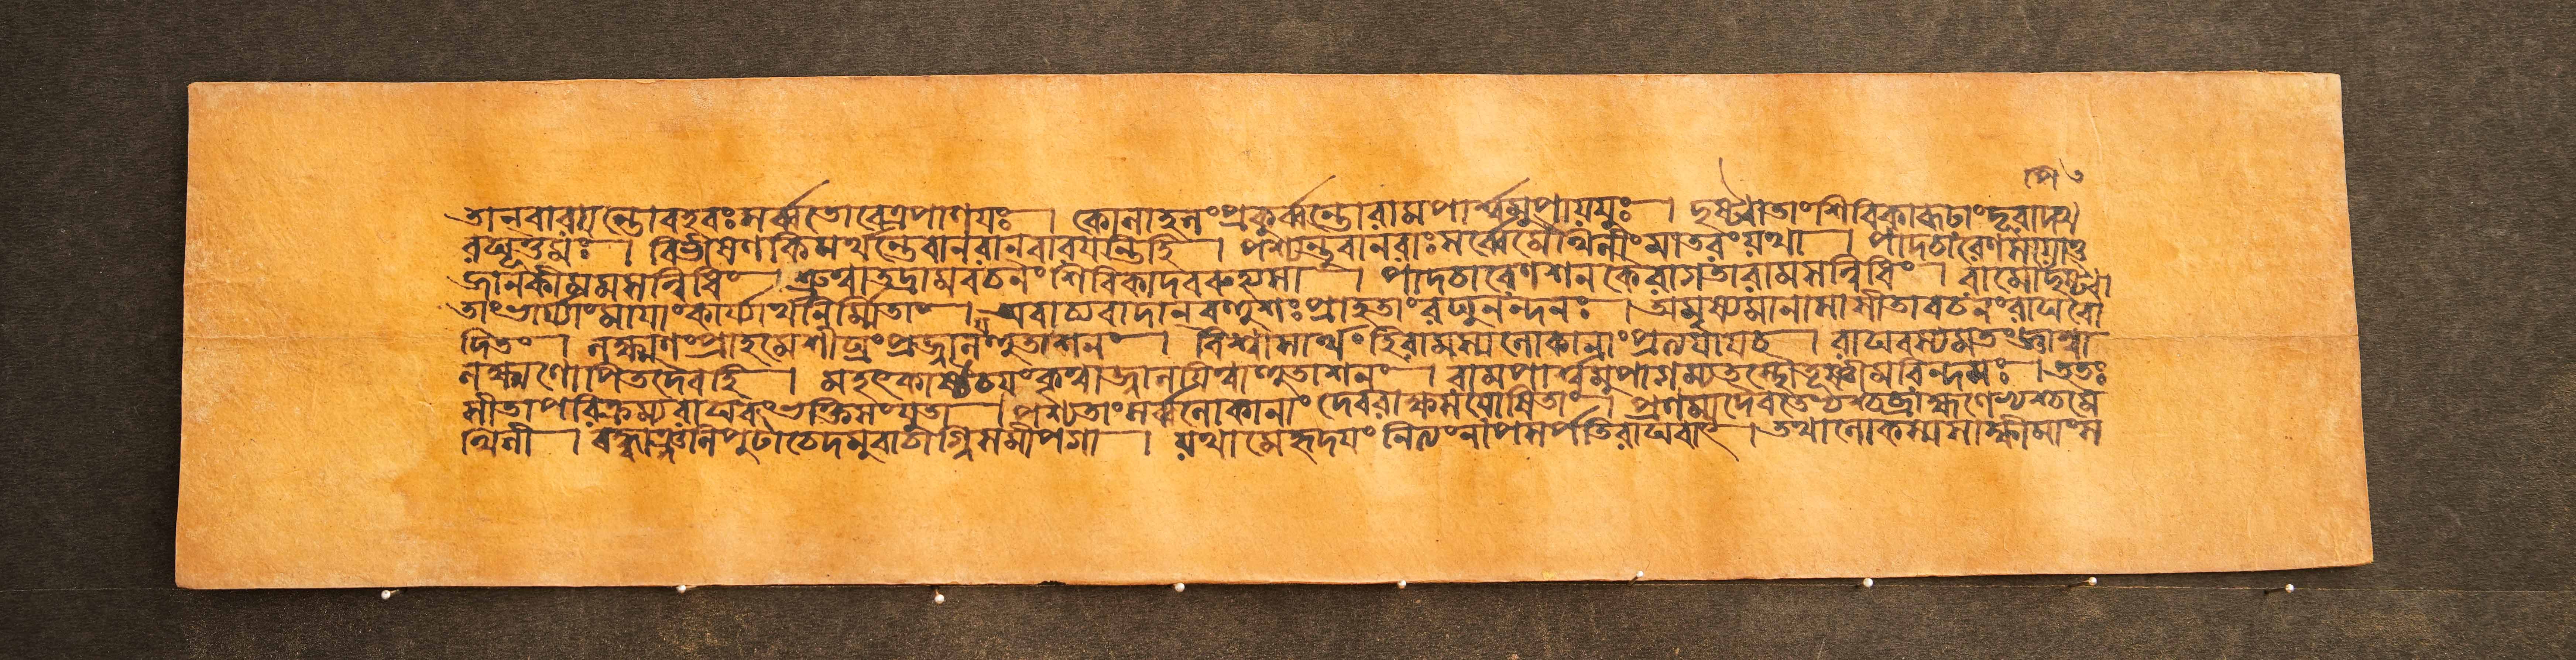 তানবারয়ন্তোবহবঃসর্ব্বতোবেত্রপাণয়ঃ । কোলাহলংপ্রকুর্ব্বন্তোরামপার্শ্বমুপায়যুঃ । দৃষ্ট্বাতাংশিবিকারূঢাংদূরাদথ
রঘূত্তমঃ । বিভীষণকিমর্থন্তেবানরানবারয়ন্তিহি । পশ্যন্তুবানরাঃসর্ব্বেমৈথিলীংমাতরংযথা । পাদচারেণসায়াতু
জানকীমমসন্নিধিং । শ্রুত্বাতদ্রামবচনংশিবিকাদবরুহ্যসা । পাদচারেণশনকৈরাগতারামসন্নিধিং । রামোদৃষ্ট্বা
তাংভার্য্যাংমায়াংকার্য্যার্থনির্ম্মিতাং । অবাচ্যবাদানবহুশঃপ্রাহতাংরঘুনন্দনঃ । অমৃষ্যমাণাসাসীতাবচনংরাঘবো
দিতং । লক্ষ্মণংপ্রাহমেশীঘ্রংপ্রজ্বালয়হুতাশনং । বিশ্বাসার্থংহিরামস্যলোকানাংপ্রত্যয়ায়চ । রাঘবস্যমতংজ্ঞাত্বা
লক্ষ্মণোপিতদৈবহি । মহৎকাষ্ঠচয়ংকৃত্বাজ্বালয়িত্বাহুতাশনং । রামপার্শ্বমুপাগম্যতস্থৌতূষ্ণীমরিন্দমঃ । ততঃ
সীতাপরিক্রম্যরাঘবংভক্তিসংযুতা । পশ্যতাংসর্ব্বলোকানাংদেবরাক্ষসযোষিতাং । প্রণম্যদেবতেভ্যশ্চব্রাহ্মণেভ্যশ্চমৈ
থিলী । বদ্ধাঞ্জলিপুটাচেদমুবাচাগ্নিসমীপগা । যথামেহৃদয়ংনিত্যংনাপসর্পতিরাঘবাৎ । তথালোকস্যসাক্ষীমাংস